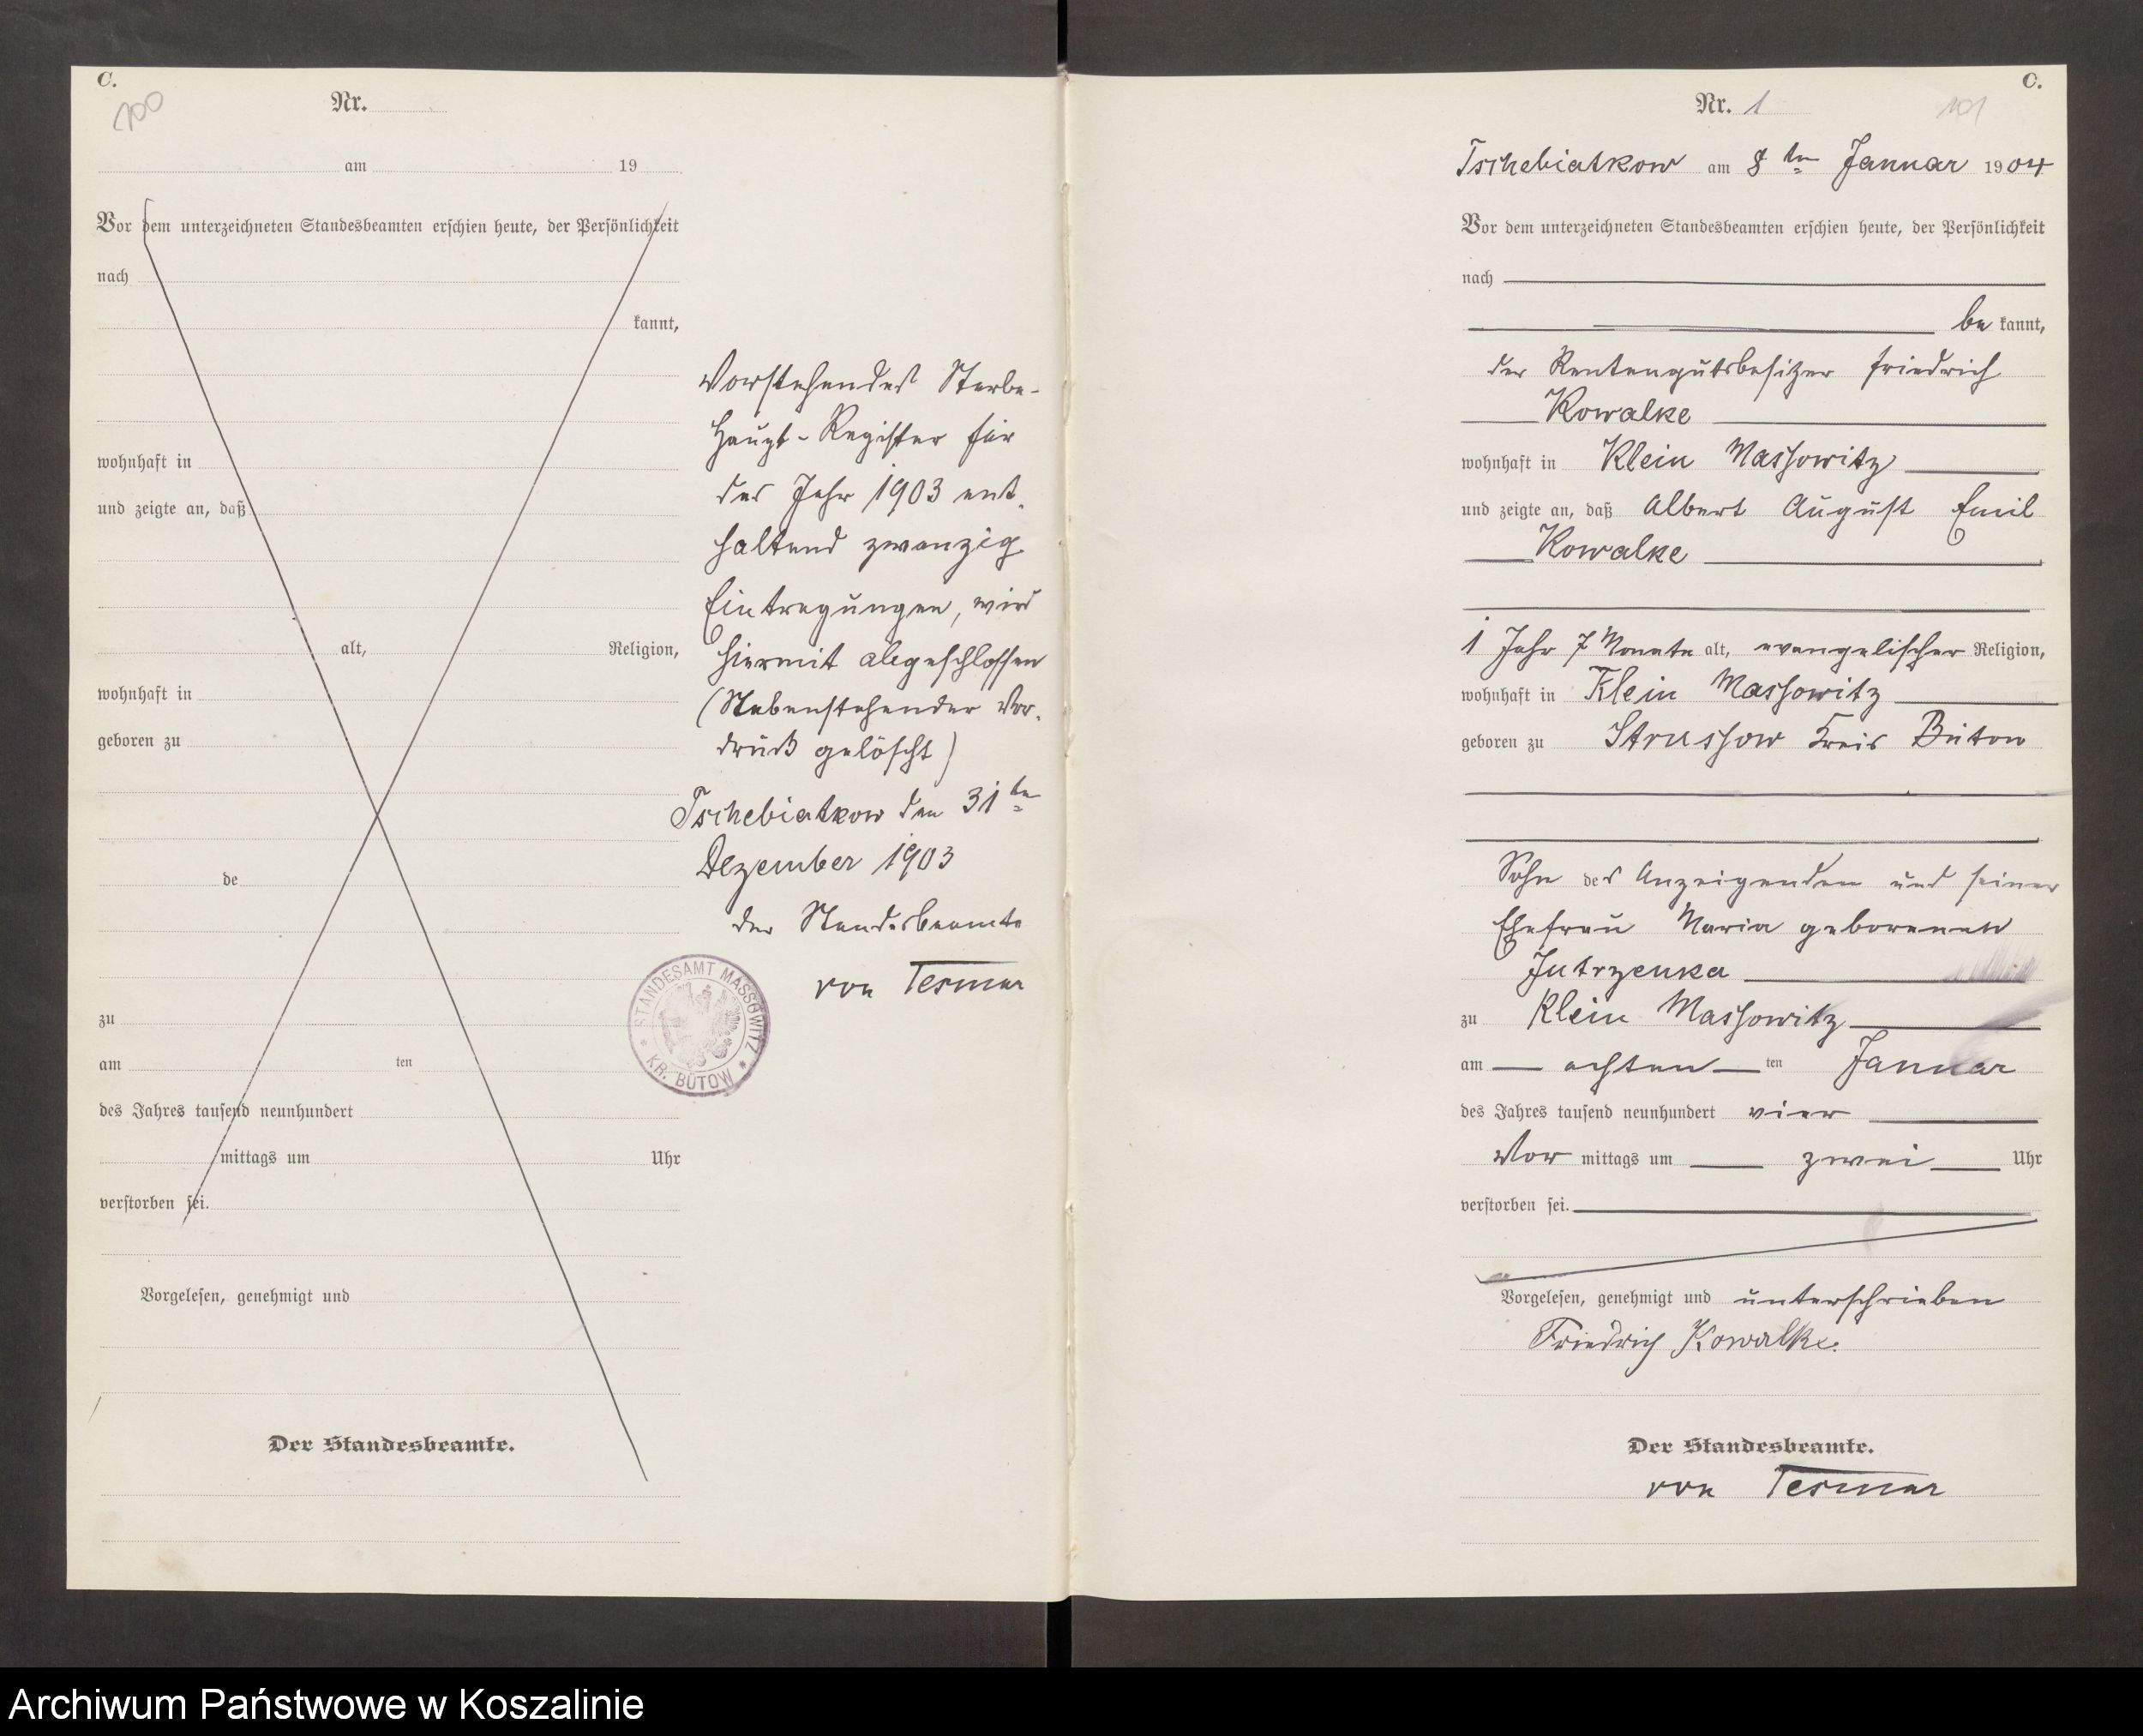 C.
100
Nr.
am 19
Vor dem unterzeichneten Standesbeamten erschien heute, der Persönlichkeit
nach
kannt,
wohnhaft in
und zeigte an, daß
alt, Religion,
wohnhaft in
geboren zu
de
zu
am ten
des Jahres tausend neunhundert
mittags um Uhr
verstorben sei.
Vorgelesen, genehmigt und
Der Standesbeamte.
Vorstehendes Sterbe-
Haupt-Register für
das Jahr 1903 ent-
haltend zwanzig
Eintragungen, wird
hiermit abgeschlossen
(Nebenstehender Vor-
druck gelöscht)
Tschebiatkow den 31ten
Dezember 1903
der Standesbeamte
von Tesmar
STANDESAMT MASSOWITZ
* KR. BÜTOW *
C.
101
Nr. 1
Tschebiatkow am 8ten Januar 1904
Vor dem unterzeichneten Standesbeamten erschien heute, der Persönlichkeit
nach
be kannt,
der Rentengutsbesitzer Friedrich
Kowalke
wohnhaft in Klein Massowitz
und zeigte an, daß Albert August Emil
Kowalke
1 Jahr 7 Monate alt, evangelischer Religion,
wohnhaft in Klein Massowitz
geboren zu Strussow Kreis Bütow
Sohn des Anzeigenden und seiner
Ehefrau Maria geborenen
Jutrzenka
zu Klein Massowitz
am achten ten Januar
des Jahres tausend neunhundert vier
Vor mittags um zwei Uhr
verstorben sei.
Vorgelesen, genehmigt und unterschrieben
Friedrich Kowalke.
Der Standesbeamte.
von Tesmar
Archiwum Państwowe w Koszalinie